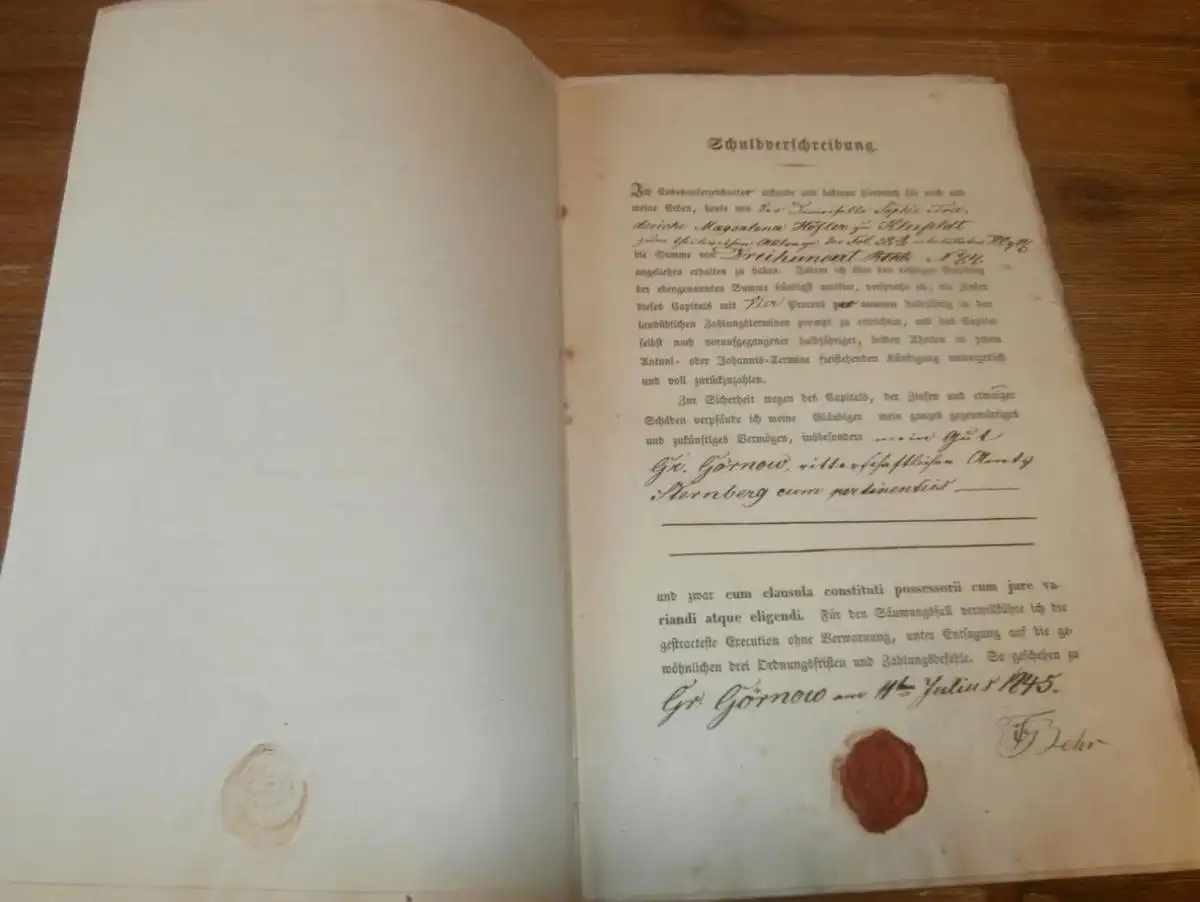 Schuldverschreibung.
Ich Endesunterzeichneter urkunde und bekenne hierdurch für mich und
meine Erben, heute von der Sophie Frie-
dericke Magdalena Höfler zu
zum theilweisen Abtrage des Fol.
die Summe von Dreihundert
angeliehen erhalten zu haben. Indem ich über den richtigen Empfang
der ebengenannten Summe bündigst quittire, verspreche ich, die Zinsen
dieses Capitals mit Vier Procent pro annum halbjährig in den
landüblichen Zahlungsterminen prompt zu entrichten, und das Capital
selbst nach voraufgegangener halbjähriger, beiden Theilen in jedem
Antoni- oder Johannis-Termine freistehenden Kündigung unweigerlich
und voll zurückzuzahlen.
Zur Sicherheit wegen des Capitals, der Zinsen und etwaiger
Schäden verpfände ich meine Gläubiger mein ganzes gegenwärtiges
und zukünftiges Vermögen, insbesondere mein Gut
Gr. Görnow, ritterschaftlichen Amts
Sternberg cum pertinentiis
und zwar cum clausula constituti possessorii cum jure va-
riandi atque eligendi. Für den Säumungsfall verwillkühre ich die
gestracteste Execution ohne Verwarnung, unter Entsagung auf die ge-
wöhnlichen drei Ordnungsfristen und Zahlungsbefehle. So geschehen zu
Gr. Görnow am Julius 1845.
Behr